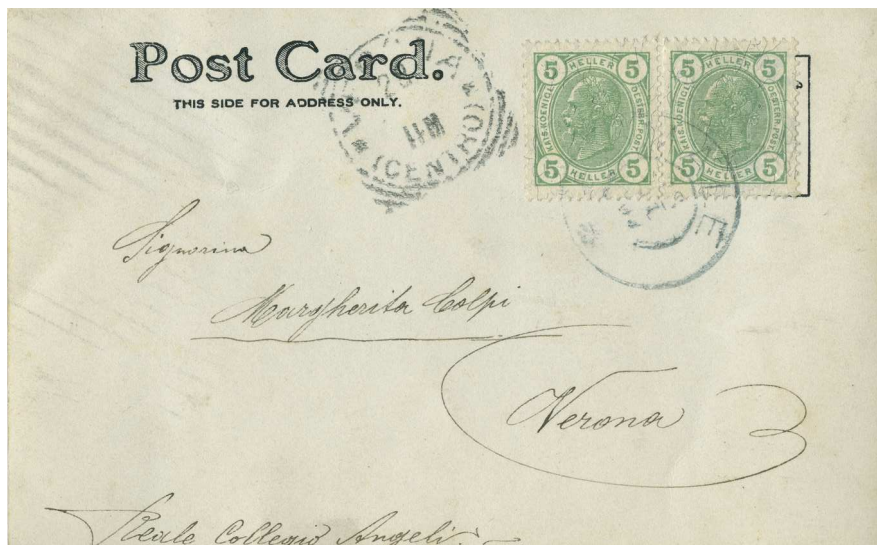 Post Card.
THIS SIDE FOR ADDRESS ONLY.
(CENTRO)
5 HELLER 5
KAIS. KOENIGL. OESTERR. POST
5 HELLER 5
5 HELLER 5
KAIS. KOENIGL. OESTERR. POST
5 HELLER 5
Signorina
Margherita Colpi
Verona
Reale Collegio Angeli.